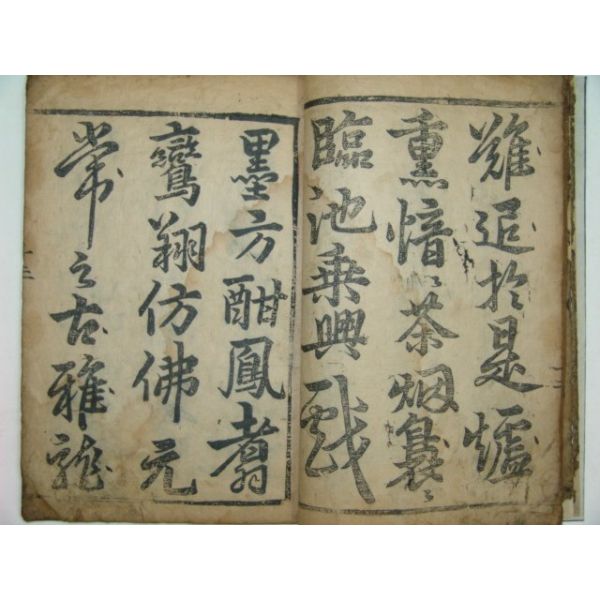 難追於是爐
熏愔〻茶烟裊〻
臨池乗興戲
墨方酣鳳翥
鸞翔仿佛元
常之古雅龍